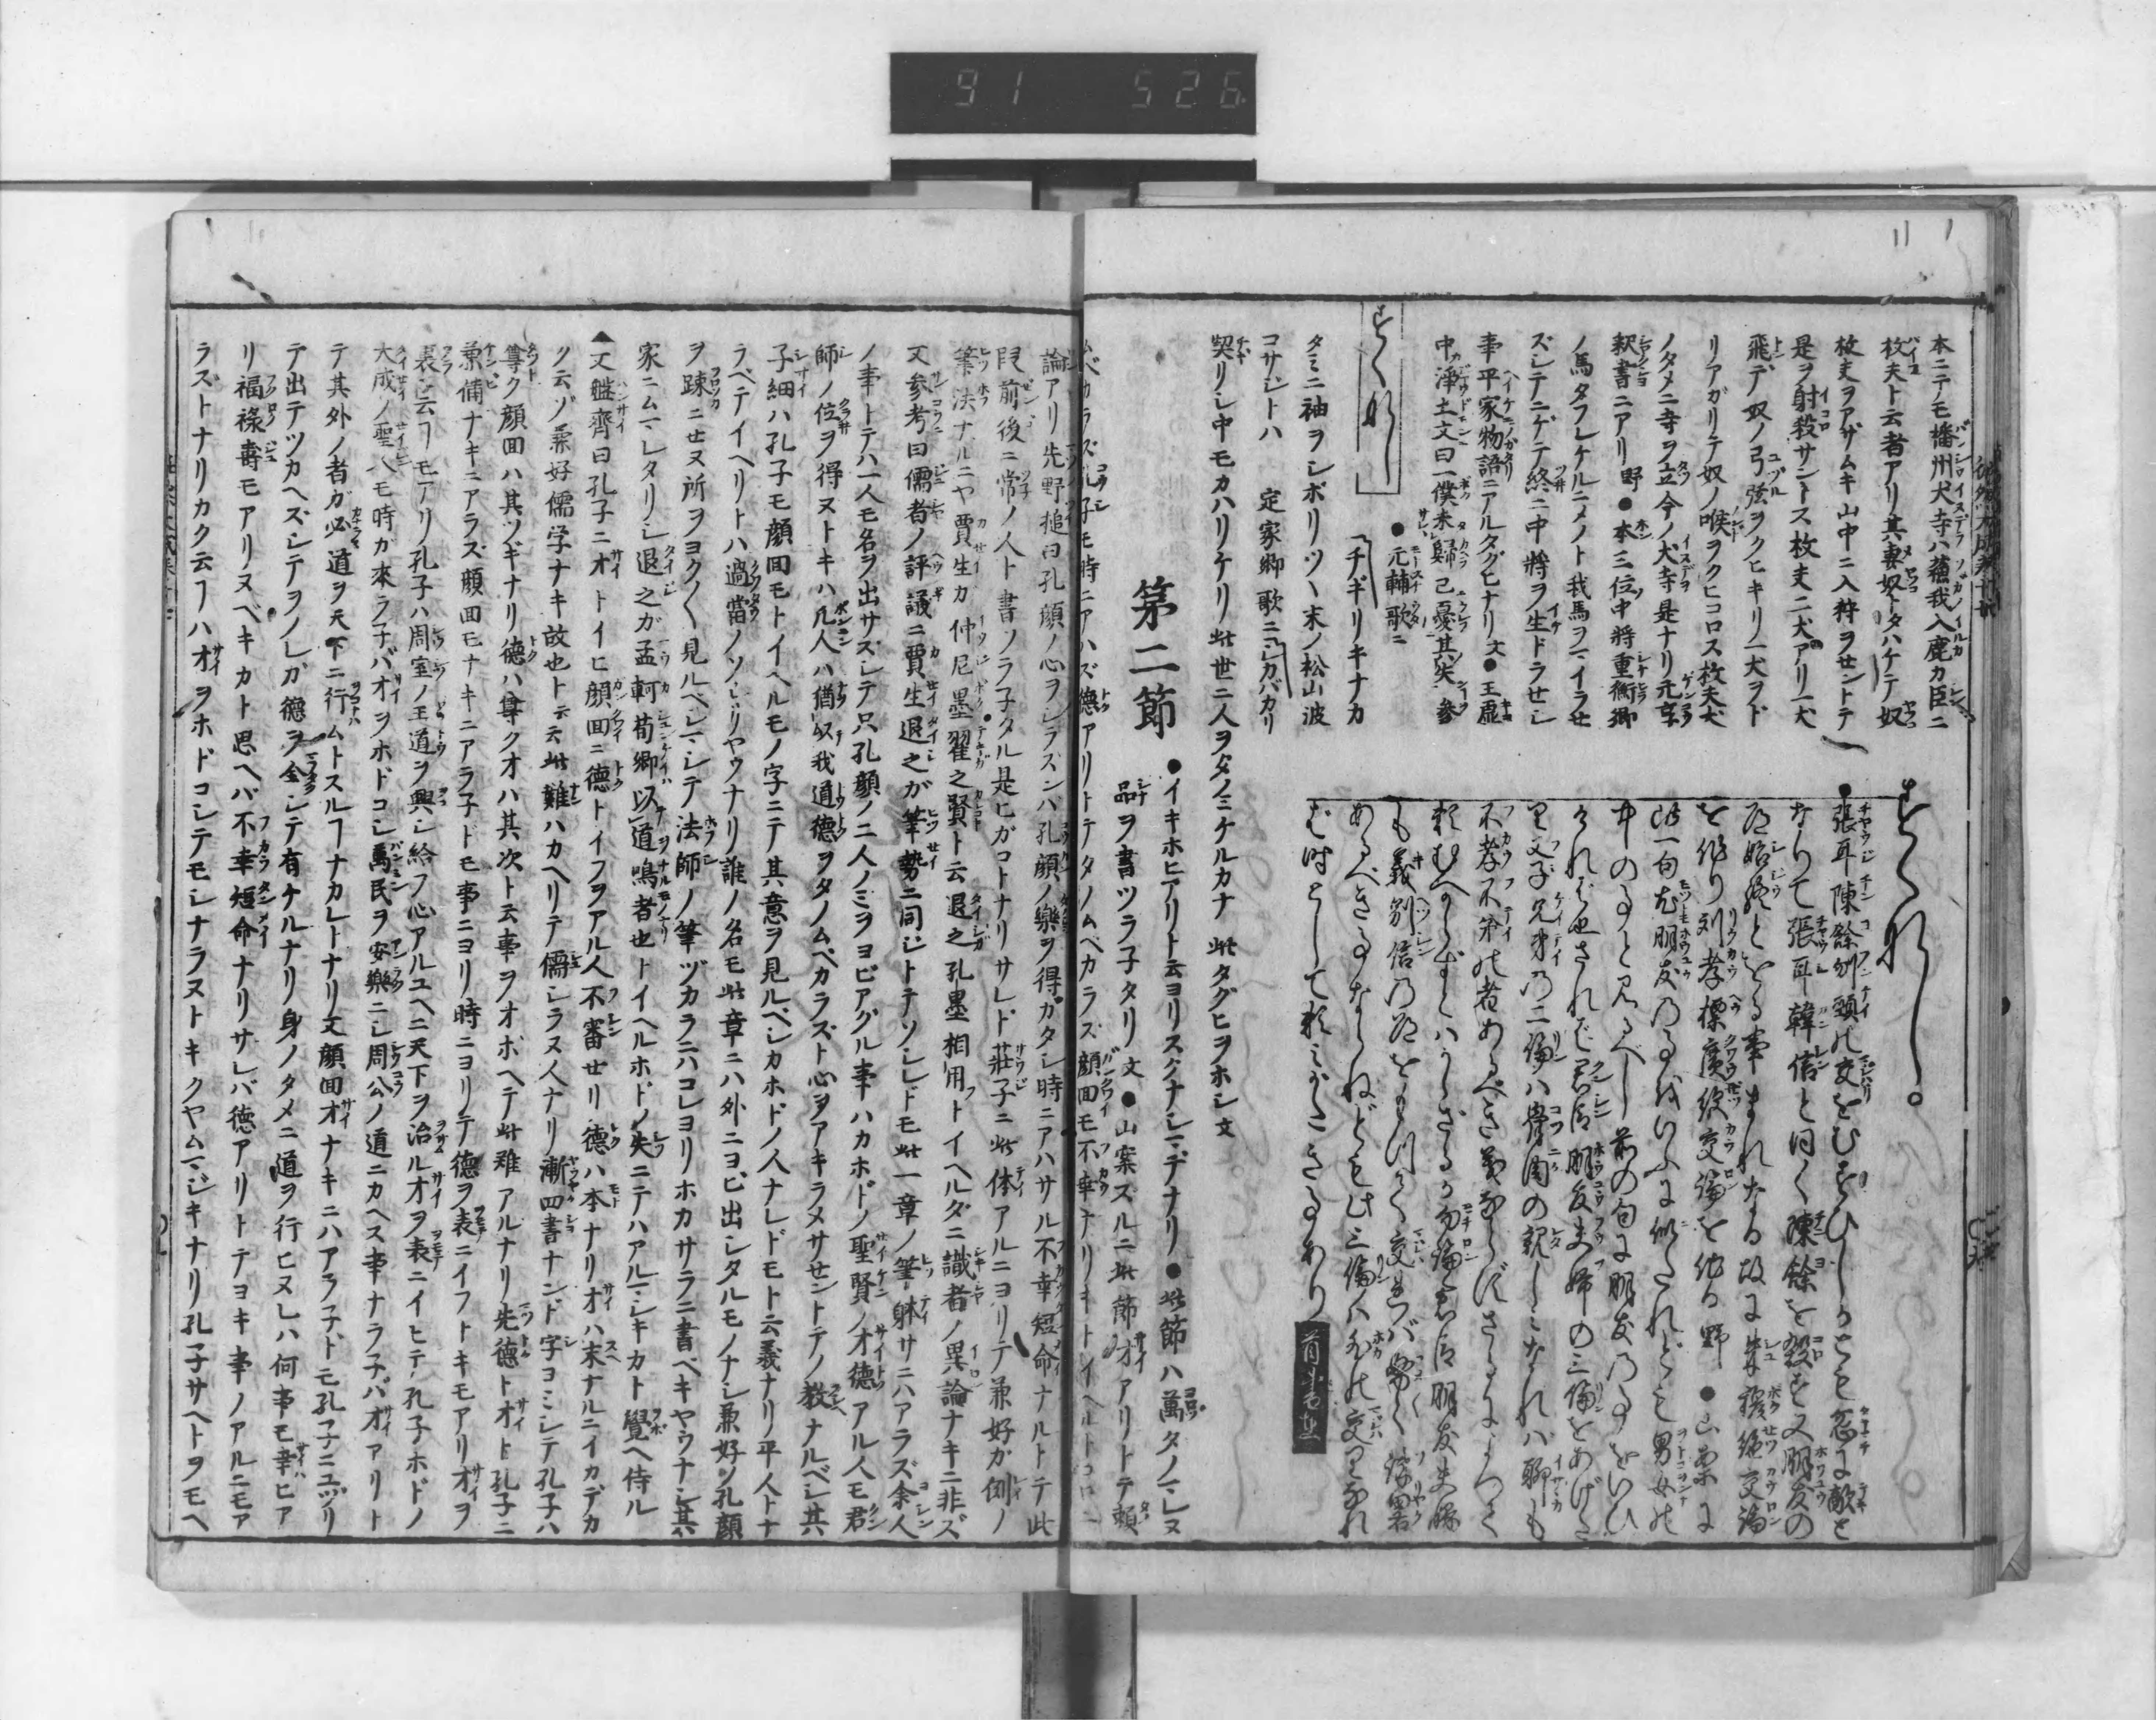 91 526
本ニテモ播州犬寺ハ蘓我入鹿カ臣ニ
枚夫ト云者アリ其妻奴トタハケテ奴
枚夫ヲアザムキ山中ニ入狩ヲセントテ
是ヲ射殺サントス枚夫ニ犬アリ一犬
飛デ奴ノ弓弦ヲクヒキリ一犬ヲド
リアガリテ奴ノ喉ヲクヒコロス枚夫犬
ノタメニ寺ヲ立今ノ犬寺是ナリ元亨
釈書ニアリ野●本三位中将重衡卿
ノ馬タフレケルニメノト我馬ヲマイラせ
ズシテニゲテ終ニ中將ヲ生ドラせシ
事平家物語ニアルタグヒナリ文●王虚
中淨土文曰一僕未歸己憂其失参
●元輔歌ニ
チギリキナカ
タミニ袖ヲシボリツヽ末ノ松山波
コサジトハ 定家卿歌ニカバカリ
契リシ中モカハリケリ此世ニ人ヲタノミケルカナ 此タグヒヲホシ文
●張耳陳餘刎頸の交をむすひしかとも忽に敵と
なりて張耳韓信と同く陳餘を殺す又朋友の
道始終とをる事まれなる故に朱穆絶交論
を作り劉孝標廣絶交論を作る野●山案に
此一句尤朋友乃事をいふに似たれども男女の
中のことと見るべし前の句に朋友乃事をいひ
たれば也されど君臣朋友夫婦の三倫をあげた
り父子兄弟乃二倫ハ骨肉の親しみなれハ聊も
不孝不弟の者あるべき
頼むべからずとハ 勿論君臣朋友夫婦
も義別信乃道
あるべきことならねども此三倫ハ外の交
む時として頼みがたきことあり
第二節
●イキホヒアリト云ヨリスクナシマデナリ●此節ハ萬タノマレヌ
品ヲ書ツラ子タリ文●山案スルニ此節オアリトテ頼
ムベカラズ孔子モ時ニアハズ德アリトテタノムベカラズ顔回モ不幸ナリキトイヘルトコロニ
論アリ先野槌曰孔顔ノ心ヲシラズンハ孔顔ノ樂ヲ得ガタシ時ニアハサル不幸短命ナルトテ此
段前後ニ常ノ人ト書ノラ子タル是ヒガコトナリサレド莊子ニ此体アルニヨリテ兼好カ例ノ
筆法ナルニヤ賈生カ仲尼墨翟之賢ト云退之孔墨相用トイヘルダニ識者ノ異論ナキニ非ズ
又参考曰儒者ノ評議ニ賈生退之が筆勢ニ同ジトテソシレドモ此一章ノ筆躰サニハアラズ余人
ノ事トテハ一人モ名ヲ出サズシテ只孔顔ノ二人ノミヲヨビアグル事ハカホドノ聖賢ノオ德アル人モ君
師ノ位ヲ得ヌトキハ凡人ハ猶以我道德ヲタノムベカラズト心ヲアキラメサセントテノ教ナルベシ其
子細ハ孔子モ顔回モトイヘルモノ字ニテ其意ヲ見ルベシカホドノ人ナレドモト云義ナリ平人トナ
ラベテイヘリトハ過當ノソシリヤウナリ誰ノ名モ此章ニハ外ニヨビ出シタルモノナシ兼好ノ孔顔
ヲ踈ニせヌ所ヲヨクヽ見ルベシマシテ法師ノ筆ヅカラニハコレヨリホカサラニ書ベキヤウナシ其
家ニムマレタリシ退之ガ孟軻荀卿以道鳴者也トイヘルホドノ失ニテハアルマシキカト覺ヘ侍ル
▲又盤齊曰孔子ニオトイヒ顔回ニ德トイフヲアル人不審せリ德ハ本ナリオハ末ナルニイカデカ
ク云ゾ兼好儒学ナキ故也ト云此難ハカヘリテ儒シラヌ人ナリ漸四書ナンド字ヨミシテ孔子ハ
尊ク顔回ハ其ツギナリ德ハ尊クオハ其次ト云事ヲオボヘテ此難アルナリ先德トオト孔子ニ
兼備ナキニアラズ顔回モナキニアラ子ドモ事ニヨリ時ニヨリテ德ヲ表ニイフトキモアリオヲ
表ニ云フモアリ孔子ハ周室ノ王道ヲ興シ給フ心アルユヘニ天下ヲ治ルオヲ表ニイヒテ孔子ホドノ
大成ノ聖人モ時ガ來ラ子バオヲホドコシ萬民ヲ安樂ニシ周公ノ道ニカヘス事ナラ子バオアリト
テ其外ノ者ガ必道ヲ天下ニ行ハムトスルヿナカレトナリ又顔回オナキニハアラ子ドモ孔子ニユヅリ
テ出テツカヘズシテヲノレガ德ヲ全シテ有ケルナリ身ノタメニ道ヲ行ヒヌレハ何事モ幸ヒア
リ福祿壽モアリヌベキカト思ヘバ不幸短命ナリサレバ德アリトテヨキ事ノアルニモア
ラズトナリカク云ヿハオヲホドコシテモシナラヌトキクヤムマジキナリ孔子サヘトヲモヘ